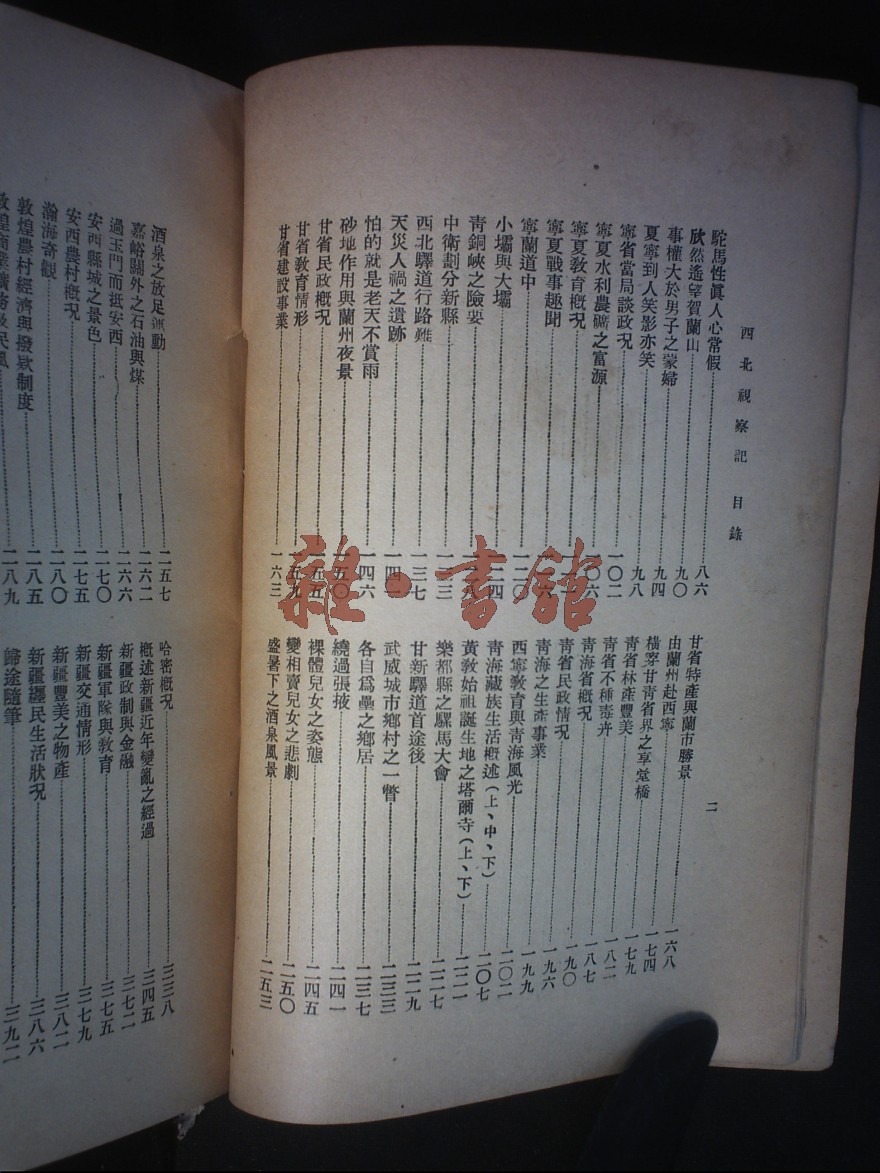 西北視察記 目錄
二
駝馬性眞人心常假 八六
欣然遙望賀蘭山 九〇
事權大於男子之蒙婦 九四
夏寧到人笑影亦笑 九八
寧省當局談政況 一〇二
寧夏水利農礦之富源 一〇六
寧夏敎育概況
寧夏戰事趣聞 一一六
寧蘭道中 一二〇
小壩與大壩 一二四
靑銅峽之險要 一二八
中衛劃分新縣 一三三
西北驛道行路難 一三七
天災人禍之遺跡 一四二
怕的就是老天不賞雨 一四六
砂地作用與蘭州夜景 一五〇
甘省民政概況 一五五
甘省敎育情形 一五九
甘省建設事業 一六三
甘省特產與蘭市勝景 一六八
由蘭州赴西寧 一七四
橫穿甘靑省界之享堂橋 一七九
靑省林產豐美 一八二
靑省不種毒卉 一八七
靑海省概況 一九〇
靑省民政情況 一九六
靑海之生產事業 一九九
西寧敎育與靑海風光 二〇二
靑海藏族生活概述(上、中、下) 二〇七
黃敎始祖誕生地之塔爾寺(上、下) 二二一
樂都縣之騾馬大會 二二七
甘新驛道首途後 二二九
武威城市鄉村之一瞥 二三三
各自爲壘之鄉居 二三七
繞過張掖 二四一
裸體兒女之姿態 二四五
變相賣兒女之悲劇 二五〇
盛暑下之酒泉風景 二五三
酒泉之放足運動 二五七
嘉峪關外之石油與煤 二六二
過玉門而抵安西 二六六
安西縣城之景色 二七〇
安西農村概況 二七五
瀚海奇觀 二八〇
敦煌農村經濟與撥欵制度 二八五
敦煌商業礦務敎民風 二八九
哈密概況 三三八
概述新疆近年變亂之經過 三四五
新疆政制與金融 三七二
新疆軍隊與敎育 三七五
新疆交通情形 三七九
新疆豐美之物產 三八二
新疆纏民生活狀況 三八六
歸途隨筆 三九二
雜·書館